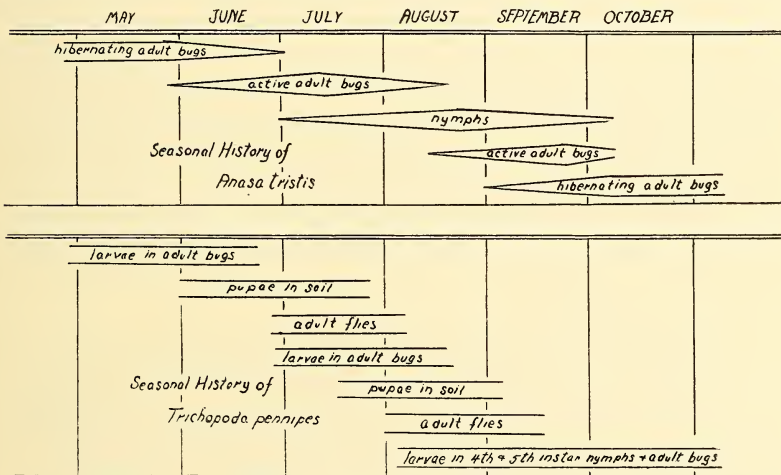 MAY JUNE JULY AUGUST SEPTEMBER OCTOBER
hibernating adult bugs
active adult bugs
nymphs
Seasonal History of
active adult bugs
Anasa tristis
hibernating adult bugs
larvae in adult bugs
pupae in soil
adult flies
larvae in adult bugs
Seasonal History of
pupae in soil
Trichopoda pennipes
adult flies
larvae in 4th & 5th instar nymphs + adult bugs